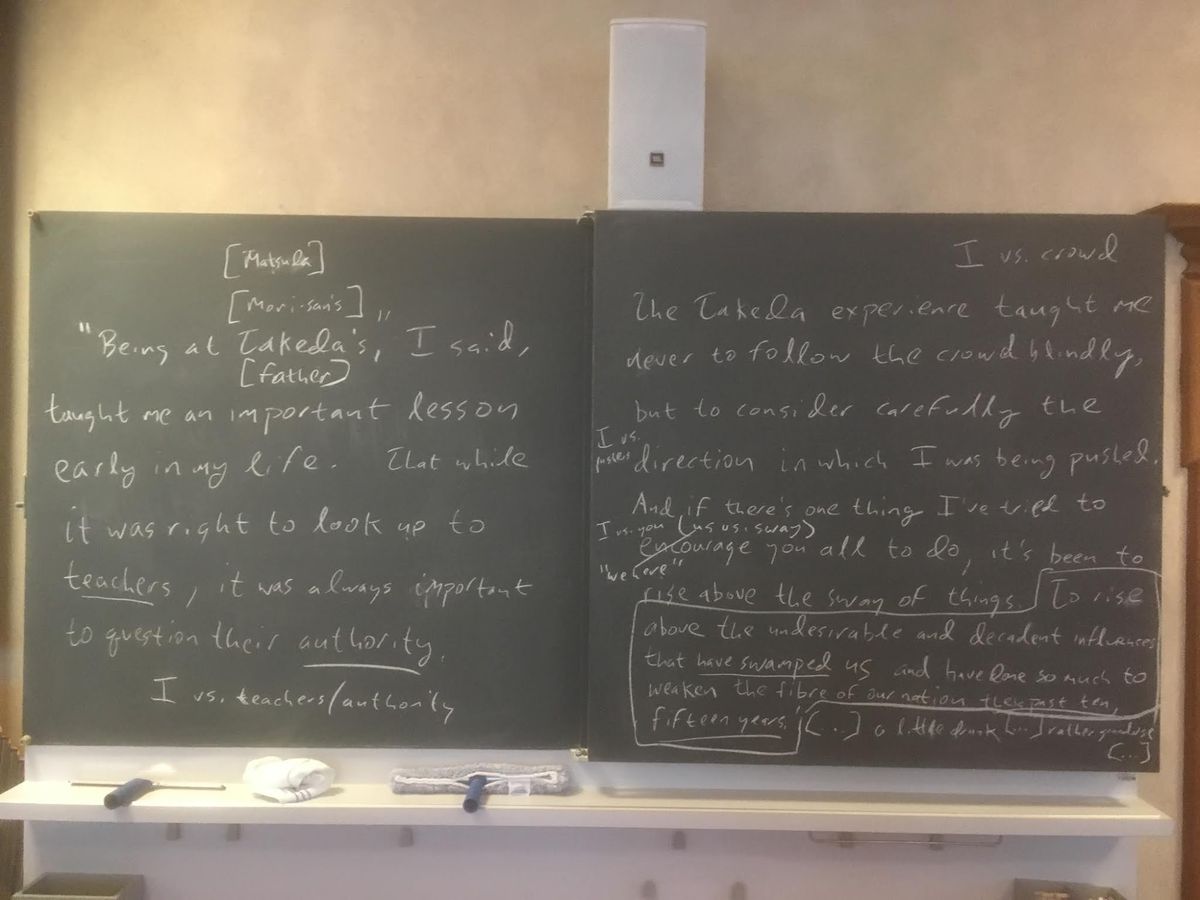 [Matsuda]
[Mori-san's]
"Being at Takeda's," I said,
[father]
taught me an important lesson
early in my life. That while
it was right to look up to
teachers, it was always important
to question their authority.
I vs. teachers/authority
I vs. crowd
The Takeda experience taught me
never to follow the crowd blindly,
but to consider carefully the
I vs. pushers
direction in which I was being pushed.
And if there's one thing I've tried to
I vs. you (us vs. sway)
encourage you all to do, it's been to
"we here"
rise above the sway of things. To rise
above the undesirable and decadent influences
that have swamped us and have done so much to
weaken the fibre of our nation the past ten,
fifteen years. [...] a little drunk [...] rather grandiose
[...]
JBL